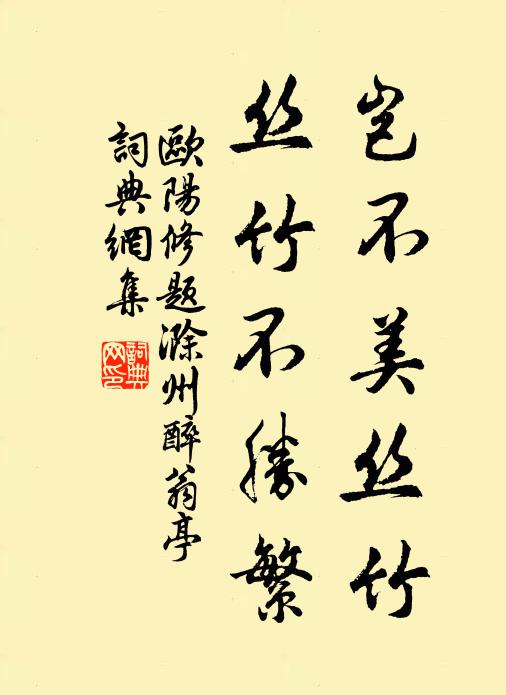 岂不美丝竹
丝竹不勝繁
歐陽修题滁州醉翁亭
詞典網集
詞典网印